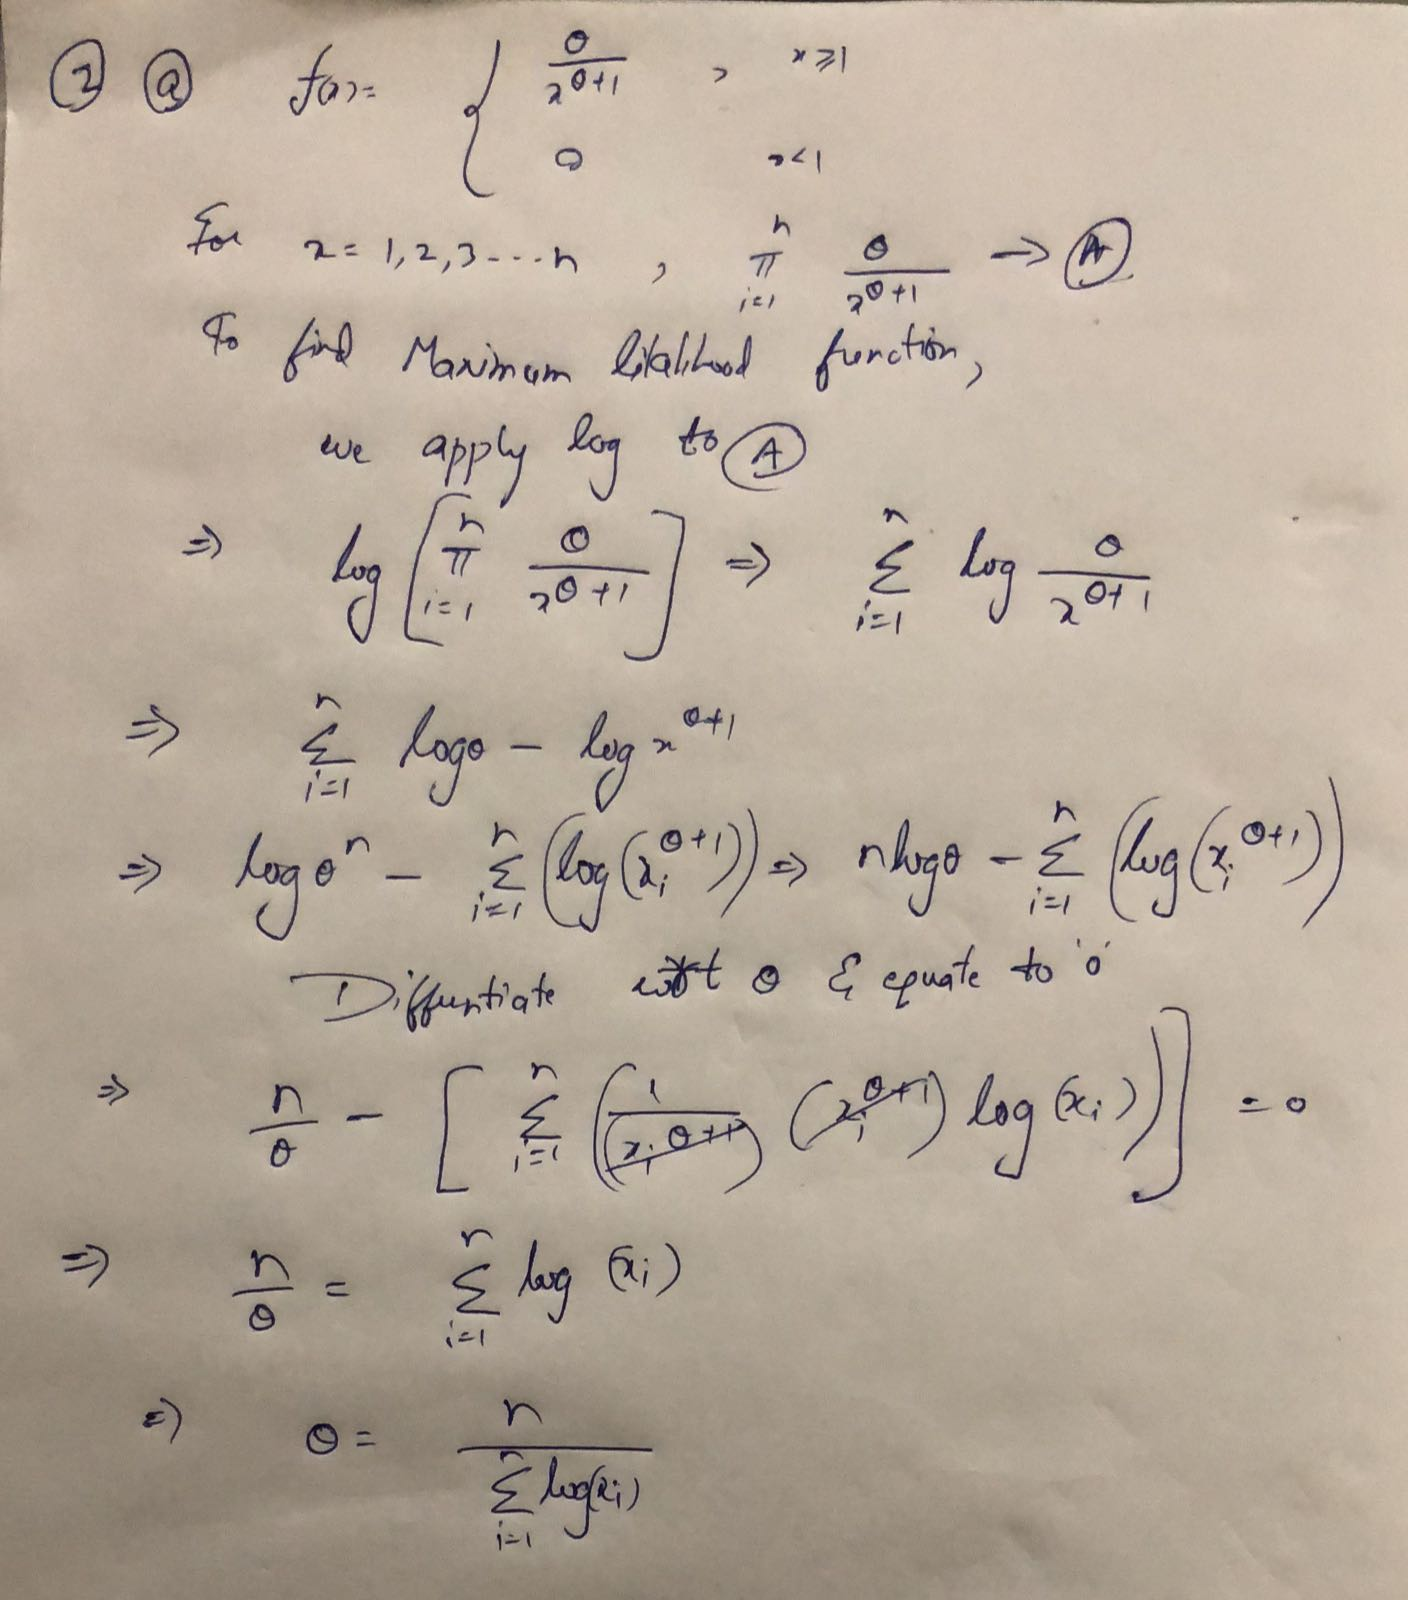 ② ⓐ f(x) = { θ / x^(θ+1) , x ≥ 1
0 x < 1
For x = 1, 2, 3 ... n , π_(i=1)^n θ / x^(θ+1) → Ⓐ
To find Maximum likelihood function,
we apply log to Ⓐ
⇒ log [ π_(i=1)^n θ / x^(θ+1) ] ⇒ Σ_(i=1)^n log θ / x^(θ+1)
⇒ Σ_(i=1)^n logθ − log x^(θ+1)
⇒ log θ^n − Σ_(i=1)^n (log(x_i^(θ+1))) ⇒ n logθ − Σ_(i=1)^n (log(x_i^(θ+1)))
Differntiate wrt θ & equate to '0'
⇒ n/θ − [ Σ_(i=1)^n ( 1 / (x_i^(θ+1)) (x_i^(θ+1)) log(x_i) ) ] = 0
⇒ n/θ = Σ_(i=1)^n log (x_i)
⇒ θ = n / Σ_(i=1)^n log(x_i)